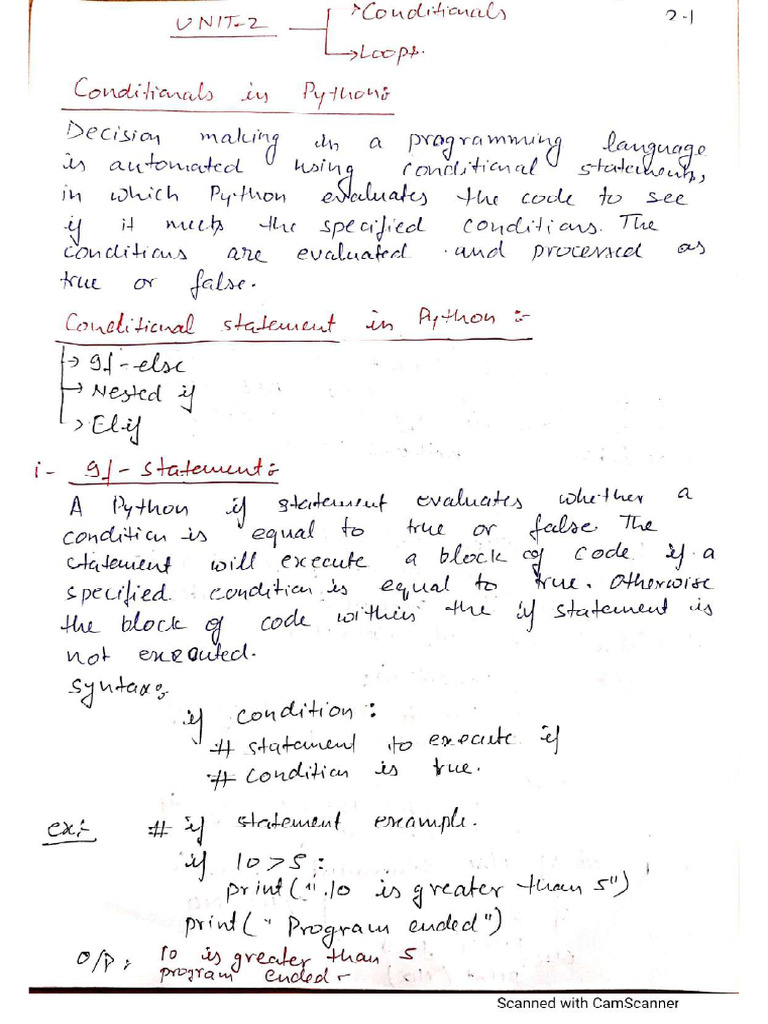 UNIT-2 → Conditionals 2-1
→ Loops.
Conditionals in Python:
Decision making in a programming language
is automated using conditional statements,
in which Python evaluates the code to see
if it meets the specified conditions. The
conditions are evaluated and processed as
true or false.
Conditional statement in Python :-
→ If-else
→ Nested if
→ Elif
i- If-Statement:
A Python if statement evaluates whether a
condition is equal to true or false. The
statement will execute a block of code if a
specified condition is equal to true. Otherwise
the block of code within the if statement is
not executed.
Syntax:
if condition:
# statement to execute if
# condition is true.
ex:- # if statement example.
if 10>5:
print("10 is greater than 5")
print("Program ended")
O/P: 10 is greater than 5
program ended-
Scanned with CamScanner